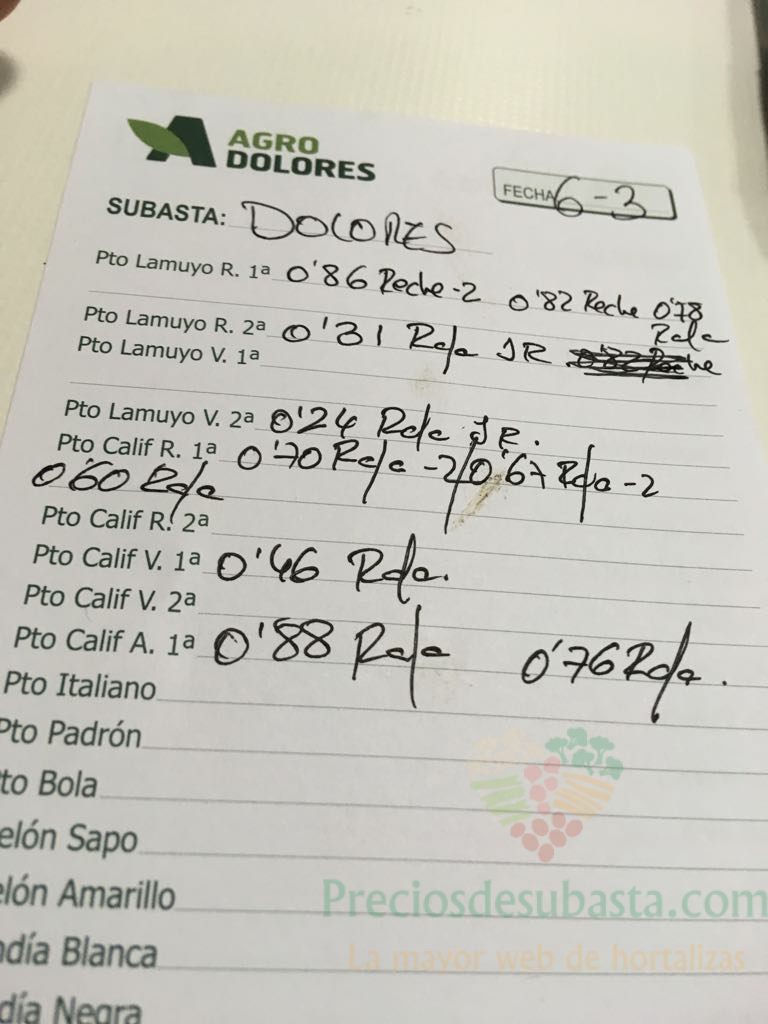 AGRO
DOLORES
FECHA 6-3
SUBASTA: DOLORES
Pto Lamuyo R. 1ª 0'86 Reche-2 0'82 Reche 0'78
Raja
Pto Lamuyo R. 2ª 0'31 Raja JR
Pto Lamuyo V. 1ª
Pto Lamuyo V. 2ª 0'24 Raja JR.
Pto Calif R. 1ª 0'70 Raja -2/0'67 Raja -2
0'60 Raja
Pto Calif R. 2ª
Pto Calif V. 1ª 0'46 Raja.
Pto Calif V. 2ª
Pto Calif A. 1ª 0'88 Raja 0'76 Raja.
Pto Italiano
Pto Padrón
to Bola
elón Sapo
elón Amarillo
ndía Blanca
día Negra
Preciosdesubasta.com
La mayor web de hortalizas